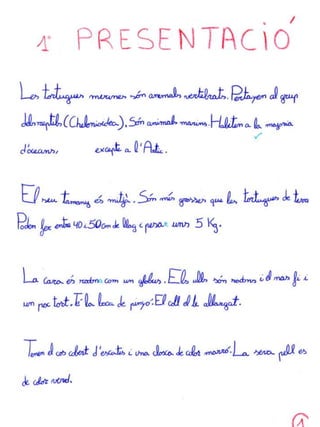 1r PRESENTACIÓ
Les tortugues marines són animals vertebrats. Pertayen al grup
dels reptils (Chelonioidea). Són animals marins. Habiten a la majoria
d'oceans, excepte a l'Àrtic.
El seu tamany és mitjà. Són més grosses que les tortugues de terra
Poden fer entre 40 i 50 cm de llag i pesar uns 5 Kg.
La cara és rodona com un globus. Els ulls són rodons i el nas fi i
un poc tort. Té la boca de pinyó. El coll el té allargat.
Tenen el cos cobert d'escates i una closca de color marró. La seva pell es
de color verd.
1